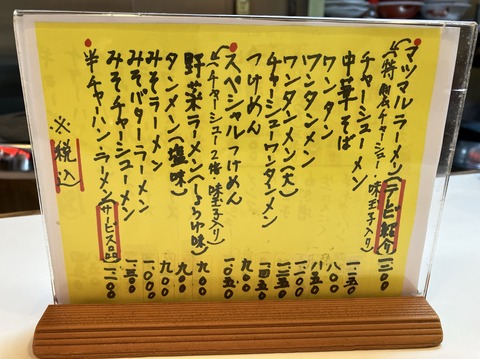 マツマルラーメン(テレビ紹介) 一三〇〇
特製チャーシュー・味玉子入り
チャーシューメン 一一五〇
中華そば 八〇〇
ワンタン 八五〇
ワンタンメン
ワンタンメン(大)
チャーシューワンタンメン
つけめん 九〇〇
スペシャルつけめん
チャーシュー2倍 味玉子入り
野菜ラーメン(しょうゆ味) 九〇〇
タンメン(塩味) 九〇〇
みそラーメン 九〇〇
みそバターラーメン 一〇〇〇
みそチャーシューメン
半チャーハン・ラーメン(サービス品)
※税込